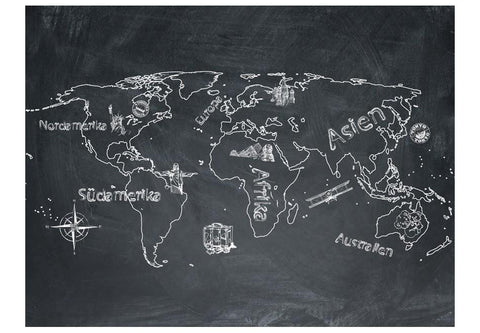 Nordamerika
Europa
Asien
Südamerika
Afrika
Australien